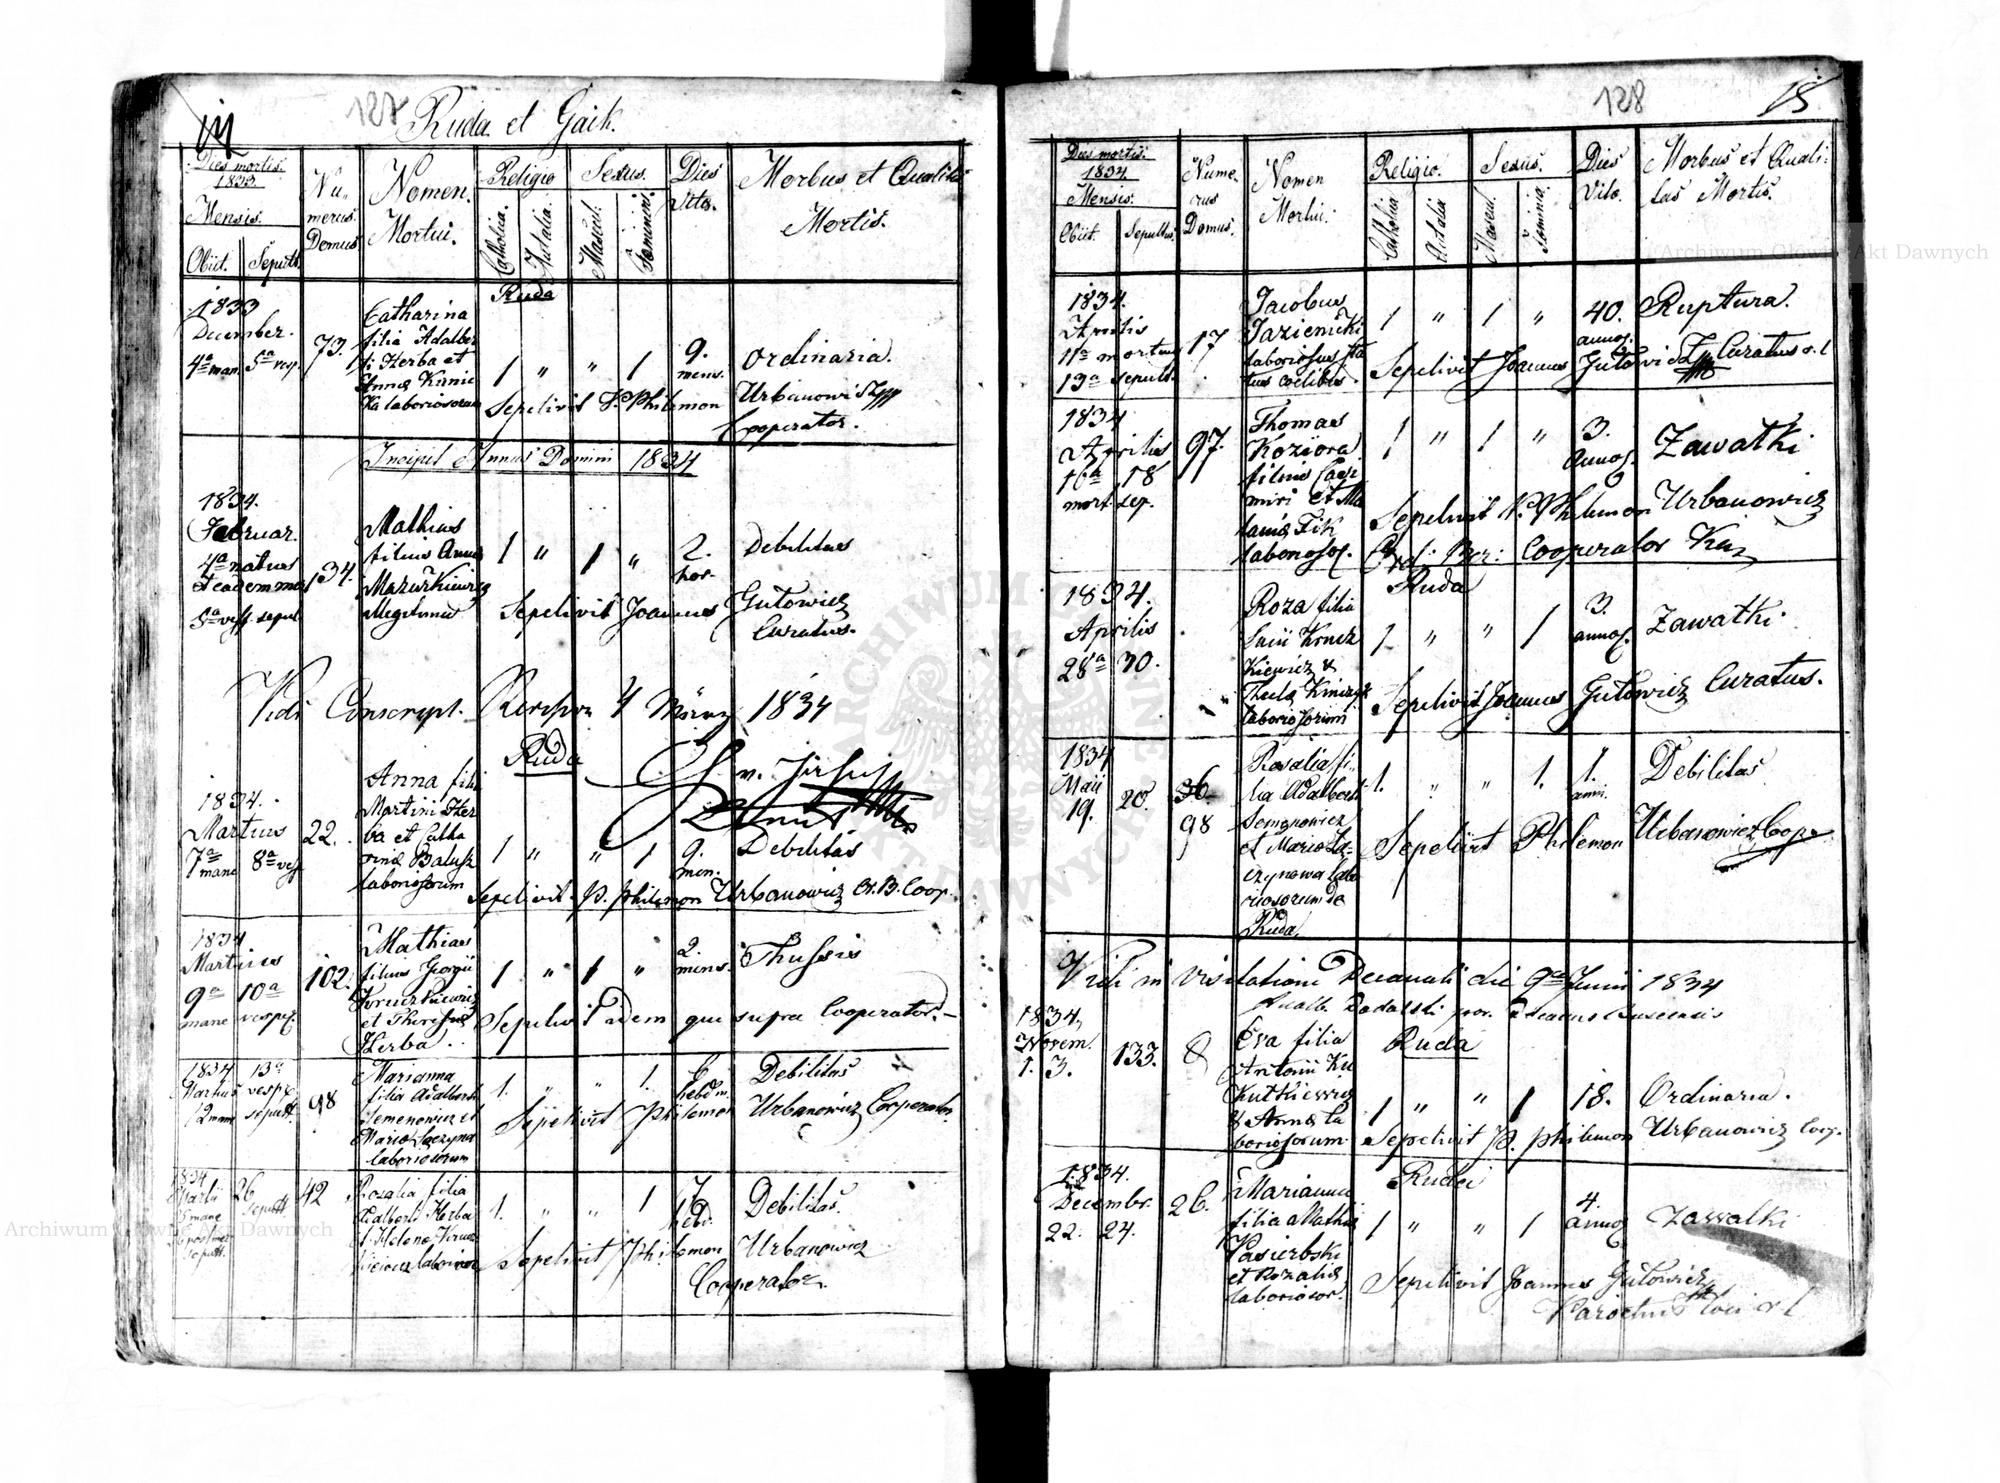 127
Ruda et Gaik.
Dies mortis. 1833. Mensis. Obiit. Sepult.
Numerus Domus.
Nomen Mortui.
Religio Catholica.
Sexus. Mascul: Feminini
Dies Vitæ.
Morbus et Qualitas Mortis.
Ruda
1833 December. 4ª man. 5ª vesp. 73.
Catharina
filia Adalber
ti Herba et
Annæ
laboriosorum
1 " " 1 9. mens. Ordinaria.
Sepelivit P. Philemon Urbanowicz
Cooperator.
Incipit Annus Domini 1834
1834. Februar. 4ª natus 34.
5ª vesp. sepul.
Mathias
filius Annæ
Mazurkiewicz
illegitimus
1 " 1 " 2. hor. Debilitas
Sepelivit Joannes Gutowicz
Curatus.
Vidi Conscript. Revision 4 März 1834
Ruda
1834. Martius 7ª mane 8ª vesp 22.
Anna filia
Martini Her
ba et Catha
rinæ
laboriosorum
1 " " 1 9. men. Debilitas
Sepelivit P. Philemon Urbanowicz O. B. Coop.
1834 Martius 9ª mane 10ª vesper. 102.
Mathias
filius Georgii
Kruczkiewicz
et Theresiæ
Herba.
1 " 1 " 2. mens. Thussis
Sepelivit idem qui supra Cooperator.
1834 Martius 12 mane 13ª vesper. sepult. 98
Marianna
filia Adalberti
Semenowicz et
Mariæ Łaczyna
laboriosorum
1. " " 1. 6 hebdm. Debilitas
Sepelivit Philemon Urbanowicz Cooperator.
1834 Martii 26 sepult 42
Rosalia filia
Adalberti Herba
et Helenæ
1. " " 1 Debilitas.
Sepelivit Philemon Urbanowicz
Cooperator.
128
15
Dies mortis. 1834 Mensis. Obiit. Sepultus.
Numerus Domus.
Nomen Mortui.
Religio. Catholica
Sexus. Mascul. Feminina.
Dies Vitæ.
Morbus et Qualitas Mortis.
1834. 11ª mortuus 13ª sepult. 17
Jacobus
Jaziemicki
laboriosus sta
tus coelibis.
1 " 1 " 40. annos. Ruptura.
Sepelivit Joannes Gutowicz Curatus r. l
1834 Aprilis 16ª mort. 18 sep. 97.
Thomas
Koziora
filius Casi
miri et
laboriosor.
1 " 1 " 3. annos. Zawałki
Sepelivit P. Philemon Urbanowicz
Ord: Ber: Cooperator
Ruda
1834. Aprilis 28ª 30.
Roza filia
Krucz
kiewicz &
Theclæ
laboriosorum
1 " " 1 3. annos. Zawałki
Sepelivit Joannes Gutowicz Curatus.
1834 Maii 19. 20. 36 98
Rosalia fi
lia Adalberti
Semenowicz
et Mariæ Ła-
czynowa labo
riosorum de
Ruda.
1. " " 1. 1. anni. Debilitas
Sepelivit Philemon Urbanowicz Coope
Vidi in visitatione Decanali die 9ª Junii 1834
1834. Novem. 1. 3. 133. 8
Ruda
Eva filia
Antonii Ku
kutkiewicz
& Annæ la
boriosorum
1 " " 1 18. Ordinaria.
Sepelivit P. Philemon Urbanowicz Coop.
1834. Decembr. 22. 24. 26.
Ruda
Marianna
filia Mathiæ
Pasierbski
et Rozaliæ
laboriosor.
1 " " 1 4. annos Zawałki
Sepelivit Joannes Gutowicz
Parochus loci r. l
Archiwum Główne Akt Dawnych
Archiwum Główne Akt Dawnych